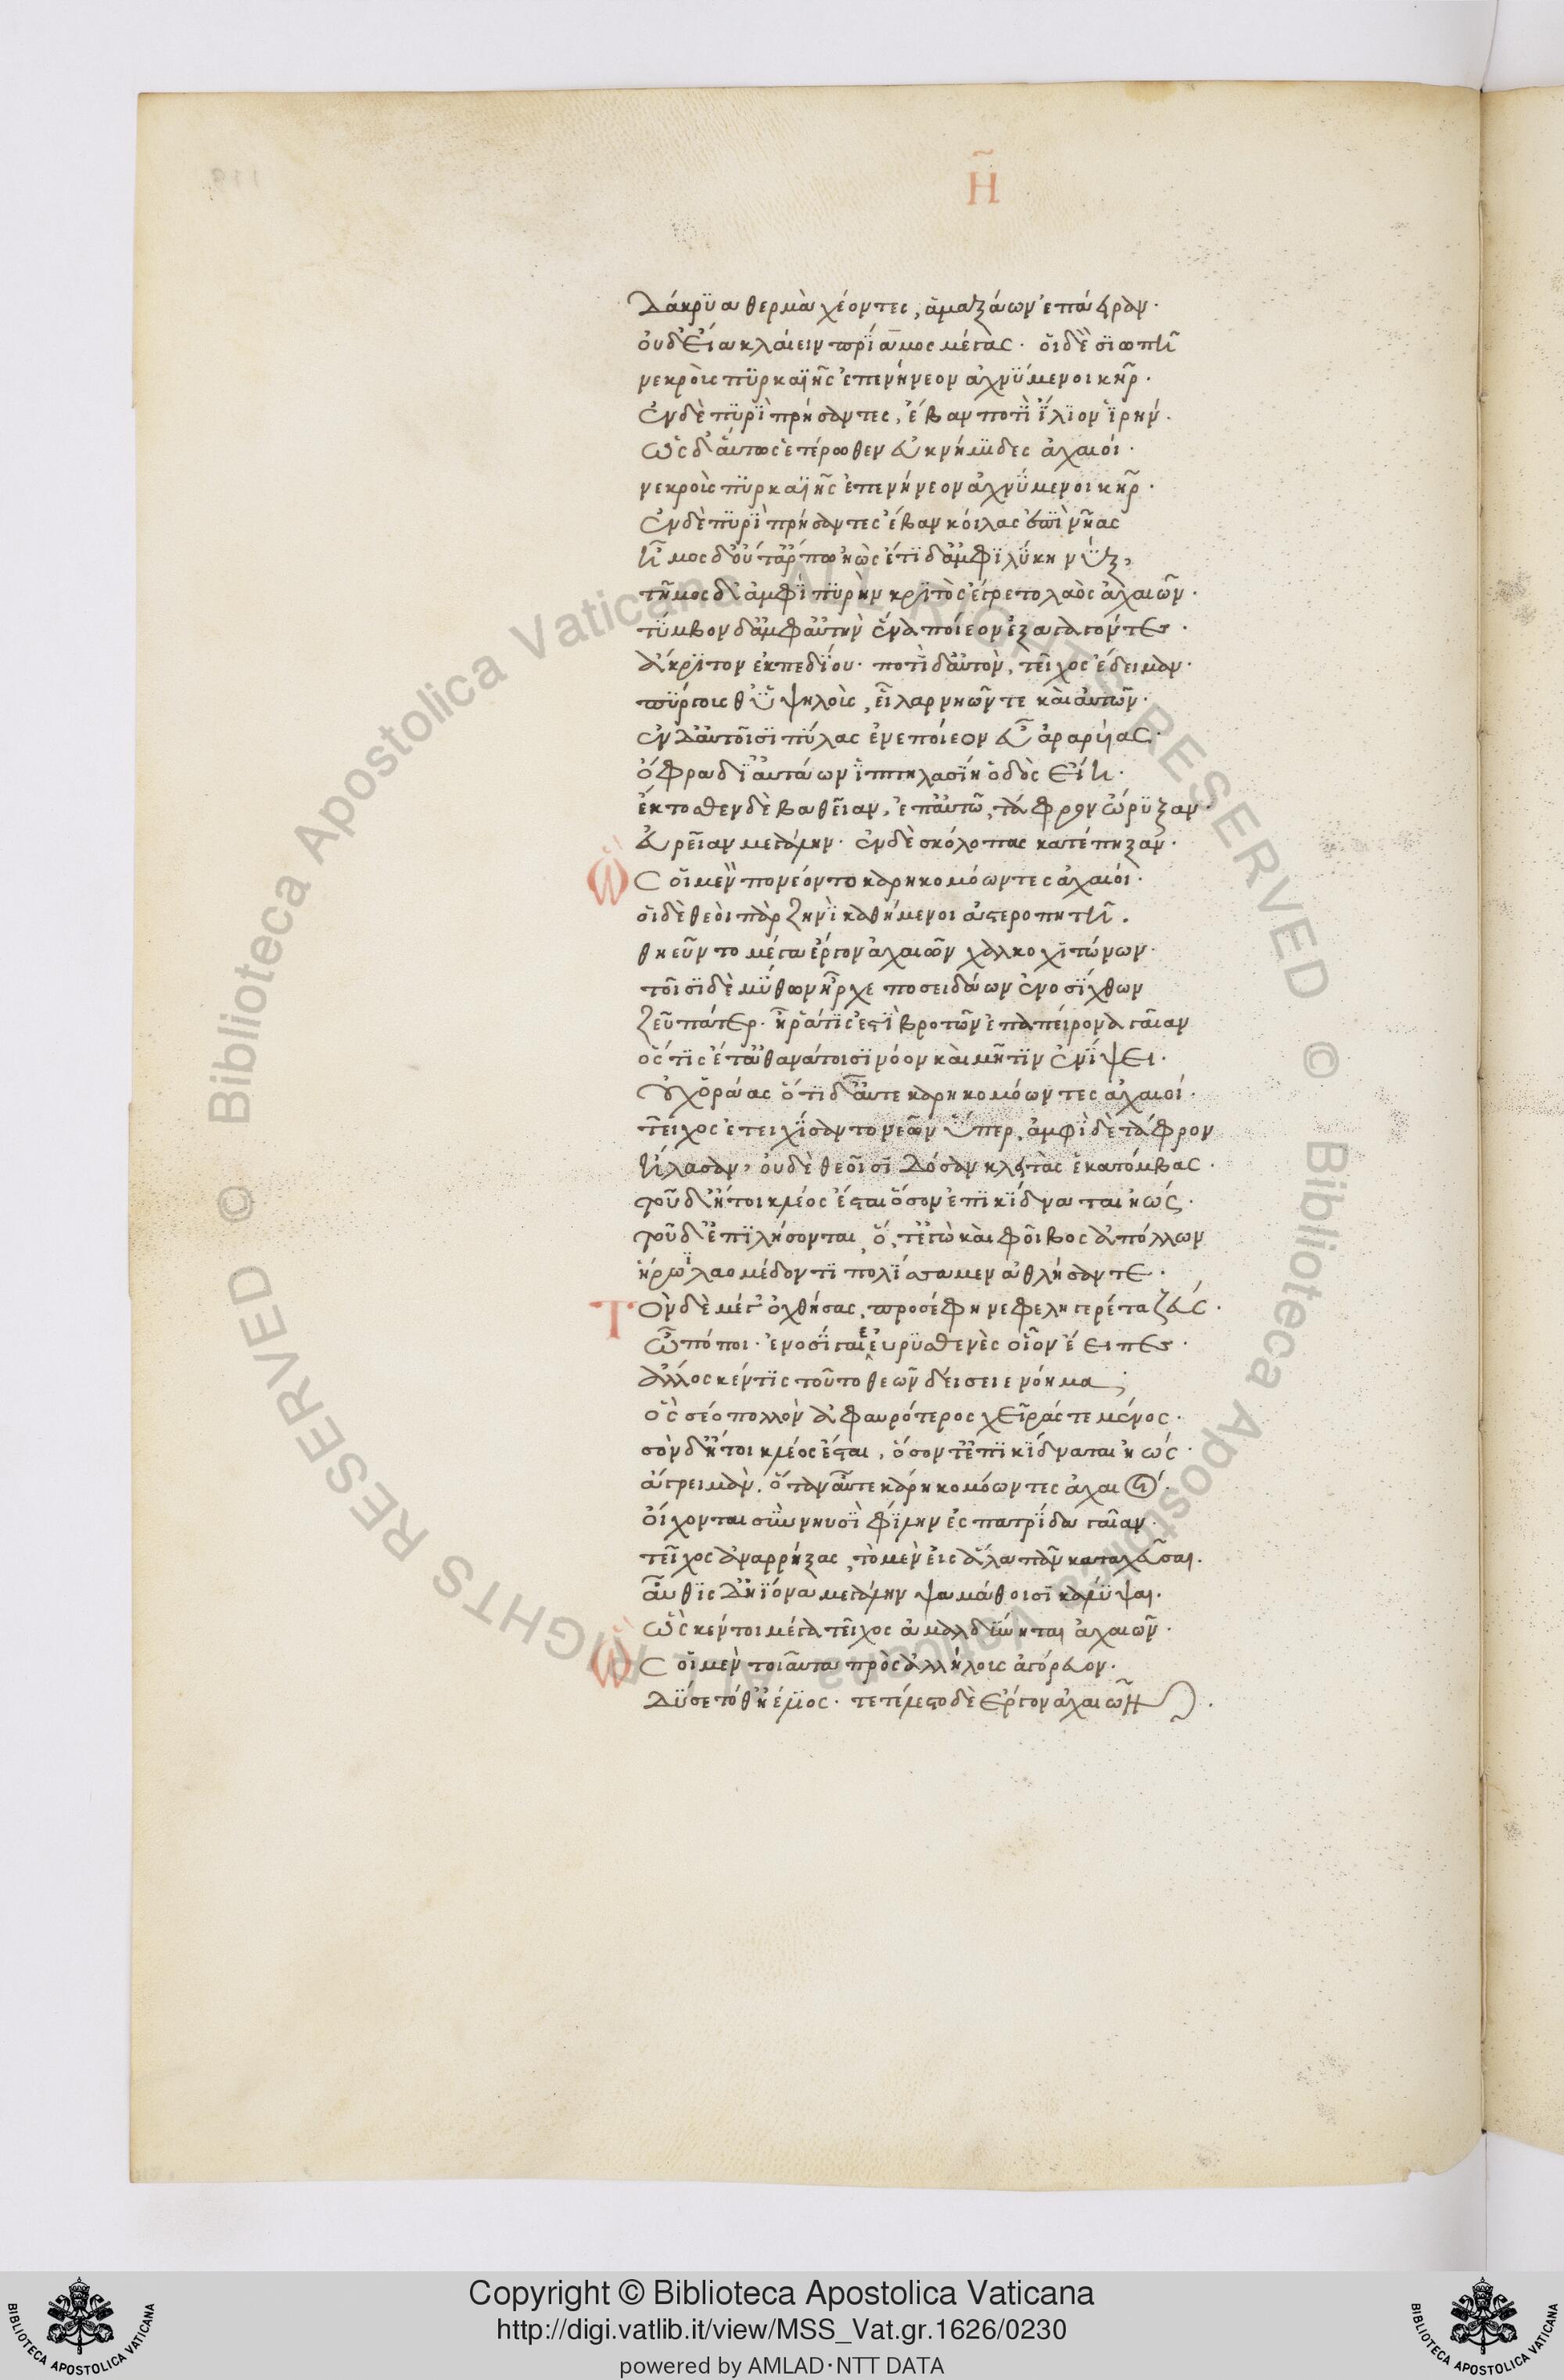 Η
δάκρυα θερμὰ χέοντες, ἁμαξάων ἐπάειραν·
οὐδ' εἴα κλαίειν πρίαμος μέγας· οἱ δὲ σιωπῆ
νεκροὺς πυρκαϊῆς ἐπενήνεον ἀχνύμενοι κῆρ·
ἐν δὲ πυρὶ πρήσαντες, ἔβαν ποτὶ ἴλιον ἱρήν·
ὣς δ' αὔτως ἑτέρωθεν ἐϋκνήμιδες ἀχαιοί·
νεκροὺς πυρκαϊῆς ἐπενήνεον ἀχνύμενοι κῆρ·
ἐν δὲ πυρὶ πρήσαντες ἔβαν κοίλας ἐπὶ νῆας
ἦμος δ' οὔτ' ἄρ πω ἠὼς ἔτι δ' ἀμφιλύκη νύξ,
τῆμος δ' ἀμφὶ πυρὴν κριτὸς ἔγρετο λαὸς ἀχαιῶν·
τύμβον δ' ἀμφ' αὐτὴν ἕνα ποίεον ἐξαγαγόντες·
ἄκριτον ἐκ πεδίου· ποτὶ δ' αὐτὸν, τεῖχος ἔδειμαν·
πύργους θ' ὑψηλοὺς, εἶλαρ νηῶν τε καὶ αὐτῶν·
ἐν δ' αὐτοῖσι πύλας ἐνεποίεον εὖ ἀραρυίας·
ὄφρα δι' αὐτάων ἱππηλασίη ὁδὸς εἴη·
ἔκτοσθεν δὲ βαθεῖαν, ἐπ' αὐτῶ, τάφρον ὤρυξαν·
εὐρεῖαν μεγάλην· ἐν δὲ σκόλοπας κατέπηξαν·
Ὣς οἱ μὲν πονέοντο καρηκομόωντες ἀχαιοί·
οἱ δὲ θεοὶ πὰρ ζηνὶ καθήμενοι ἀστεροπητῆ.
θηεῦντο μέγα ἔργον ἀχαιῶν χαλκοχιτώνων·
τοῖσι δὲ μύθων ἦρχε ποσειδάων ἐνοσίχθων
ζεῦ πάτερ· ἦ ῥά τίς ἐστι βροτῶν ἐπ' ἀπείρονα γαῖαν
ὅς τις ἔτ' ἀθανάτοισι νόον καὶ μῆτιν ἐνίψει·
οὐχ ὁράας ὅτι δ' αὖτε καρηκομόωντες ἀχαιοί·
τεῖχος ἐτειχίσαντο νεῶν ὕπερ, ἀμφὶ δὲ τάφρον
ἤλασαν, οὐδὲ θεοῖσι δόσαν κλειτὰς ἑκατόμβας·
τοῦ δ' ἤτοι κλέος ἔσται ὅσον ἐπικίδναται ἠώς·
τοῦ δ' ἐπιλήσονται, ὅ, τ' ἐγὼ καὶ φοῖβος ἀπόλλων
ἥρω λαομέδοντι πολίσσαμεν ἀθλήσαντε·
Τὸν δὲ μέγ' ὀχθήσας, προσέφη νεφεληγερέτα ζεύς·
ὢ πόποι· ἐνοσίγαιε εὐρυσθενὲς οἷον ἔειπες·
ἄλλος κέν τις τοῦτο θεῶν δείσειε νόημα;
ὃς σέο πολλὸν ἀφαυρότερος χεῖράς τε μένος·
σὸν δ' ἤτοι κλέος ἔσται, ὅσον τ' ἐπικίδναται ἠώς·
ἄγρει μὰν, ὅταν αὖτε καρηκομόωντες ἀχαιοί·
οἴχονται σὺν νηυσὶ φίλην ἐς πατρίδα γαῖαν·
τεῖχος ἀναρρήξας, τὸ μὲν εἰς ἅλα πᾶν καταχεῦσαι.
αὖθις δ' ἠϊόνα μεγάλην ψαμάθοισι καλύψαι.
ὥς κέν τοι μέγα τεῖχος ἀμαλδύνηται ἀχαιῶν·
Ὣς οἱ μὲν τοιαῦτα πρὸς ἀλλήλους ἀγόρευον·
δύσετο δ' ἠέλιος· τετέλεστο δὲ ἔργον ἀχαιῶν·
Copyright © Biblioteca Apostolica Vaticana
http://digi.vatlib.it/view/MSS_Vat.gr.1626/0230
powered by AMLAD·NTT DATA
BIBLIOTECA APOSTOLICA VATICANA
BIBLIOTECA APOSTOLICA VATICANA
© Biblioteca Apostolica Vaticana ALL RIGHTS RESERVED
© Biblioteca Apostolica Vaticana ALL RIGHTS RESERVED